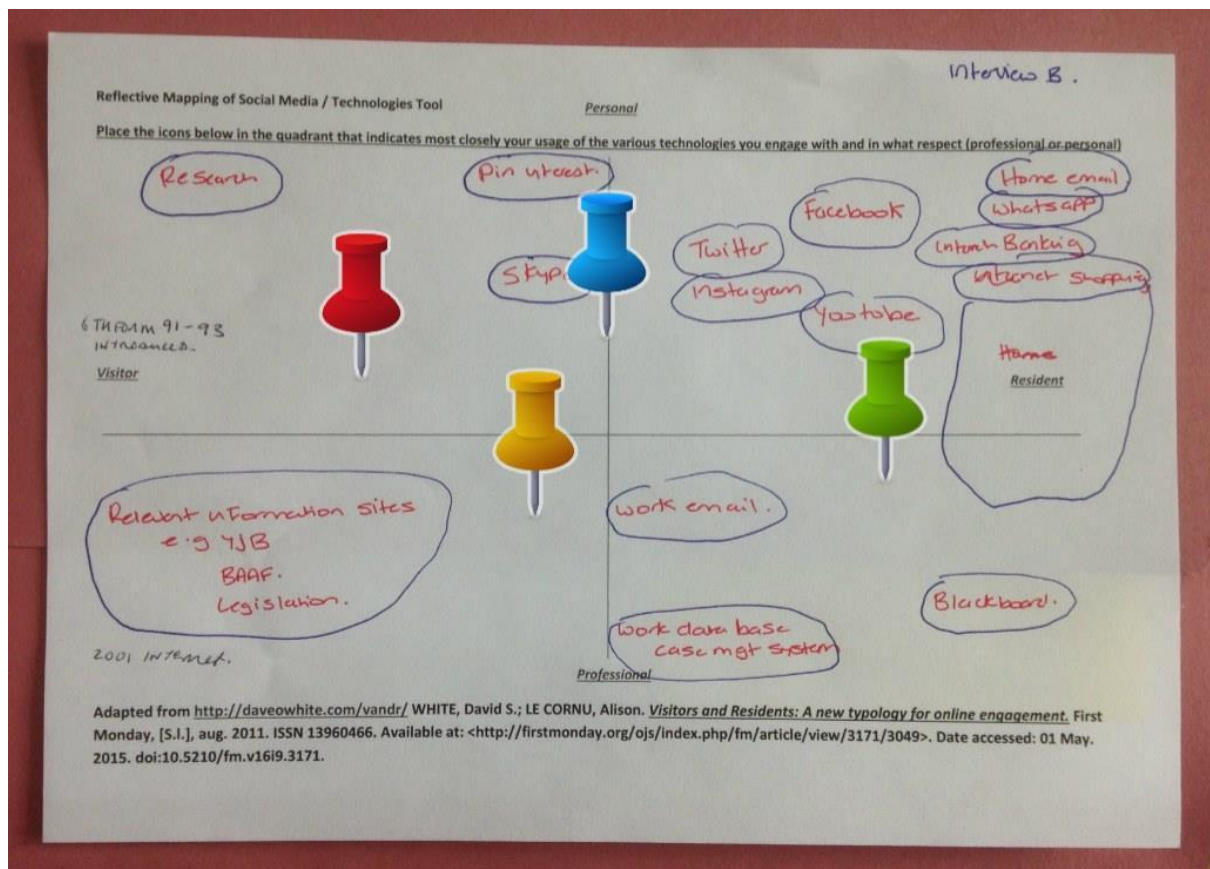 Interview B.
Reflective Mapping of Social Media / Technologies Tool
Personal
Place the icons below in the quadrant that indicates most closely your usage of the various technologies you engage with and in what respect (professional or personal)
Research
Pin interest.
Home email
Whatsapp
Facebook
Twitter
Banking
Skyp
Internet Shopping
Instagram
Youtube
6TH FORM 91-93
INTRODUCED.
Home
Visitor
Resident
Relevent information sites
e.g YJB
BAAF.
Legislation.
work email.
Blackboard.
work data base
case mgt system
2001 INTERNET.
Professional
Adapted from http://daveowhite.com/vandr/ WHITE, David S.; LE CORNU, Alison. Visitors and Residents: A new typology for online engagement. First
Monday, [S.l.], aug. 2011. ISSN 13960466. Available at: <http://firstmonday.org/ojs/index.php/fm/article/view/3171/3049>. Date accessed: 01 May.
2015. doi:10.5210/fm.v16i9.3171.